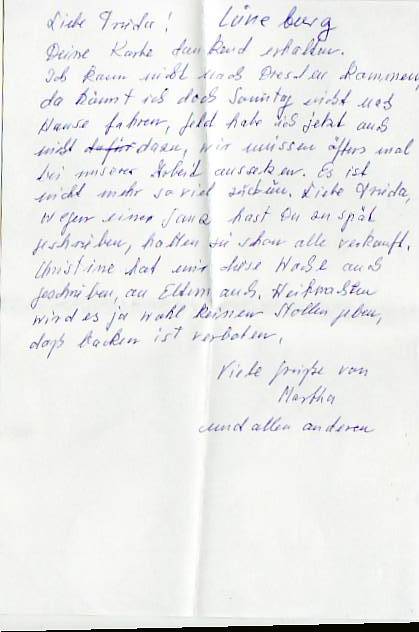 Liebe Frida! Lüneburg
Deine Karte dankend erhalten.
Ich kann nicht nach Dresden kommen,
da könnt ich doch Sonntag nicht nach
Hause fahren, Geld habe ich jetzt auch
nicht dafür dazu, wir müssen öfters mal
bei unserer Arbeit aussetzen. Es ist
nicht mehr so viel zu tun. Liebe Frida,
wegen einer Gans hast Du zu spät
geschrieben, hatten sie schon alle verkauft.
Christine hat mir diese Woche auch
geschrieben, an Eltern auch. Weihnachten
wird es ja wohl keinen Stollen geben,
daß backen ist verboten.
Viele Grüße von
Martha
und allen anderen